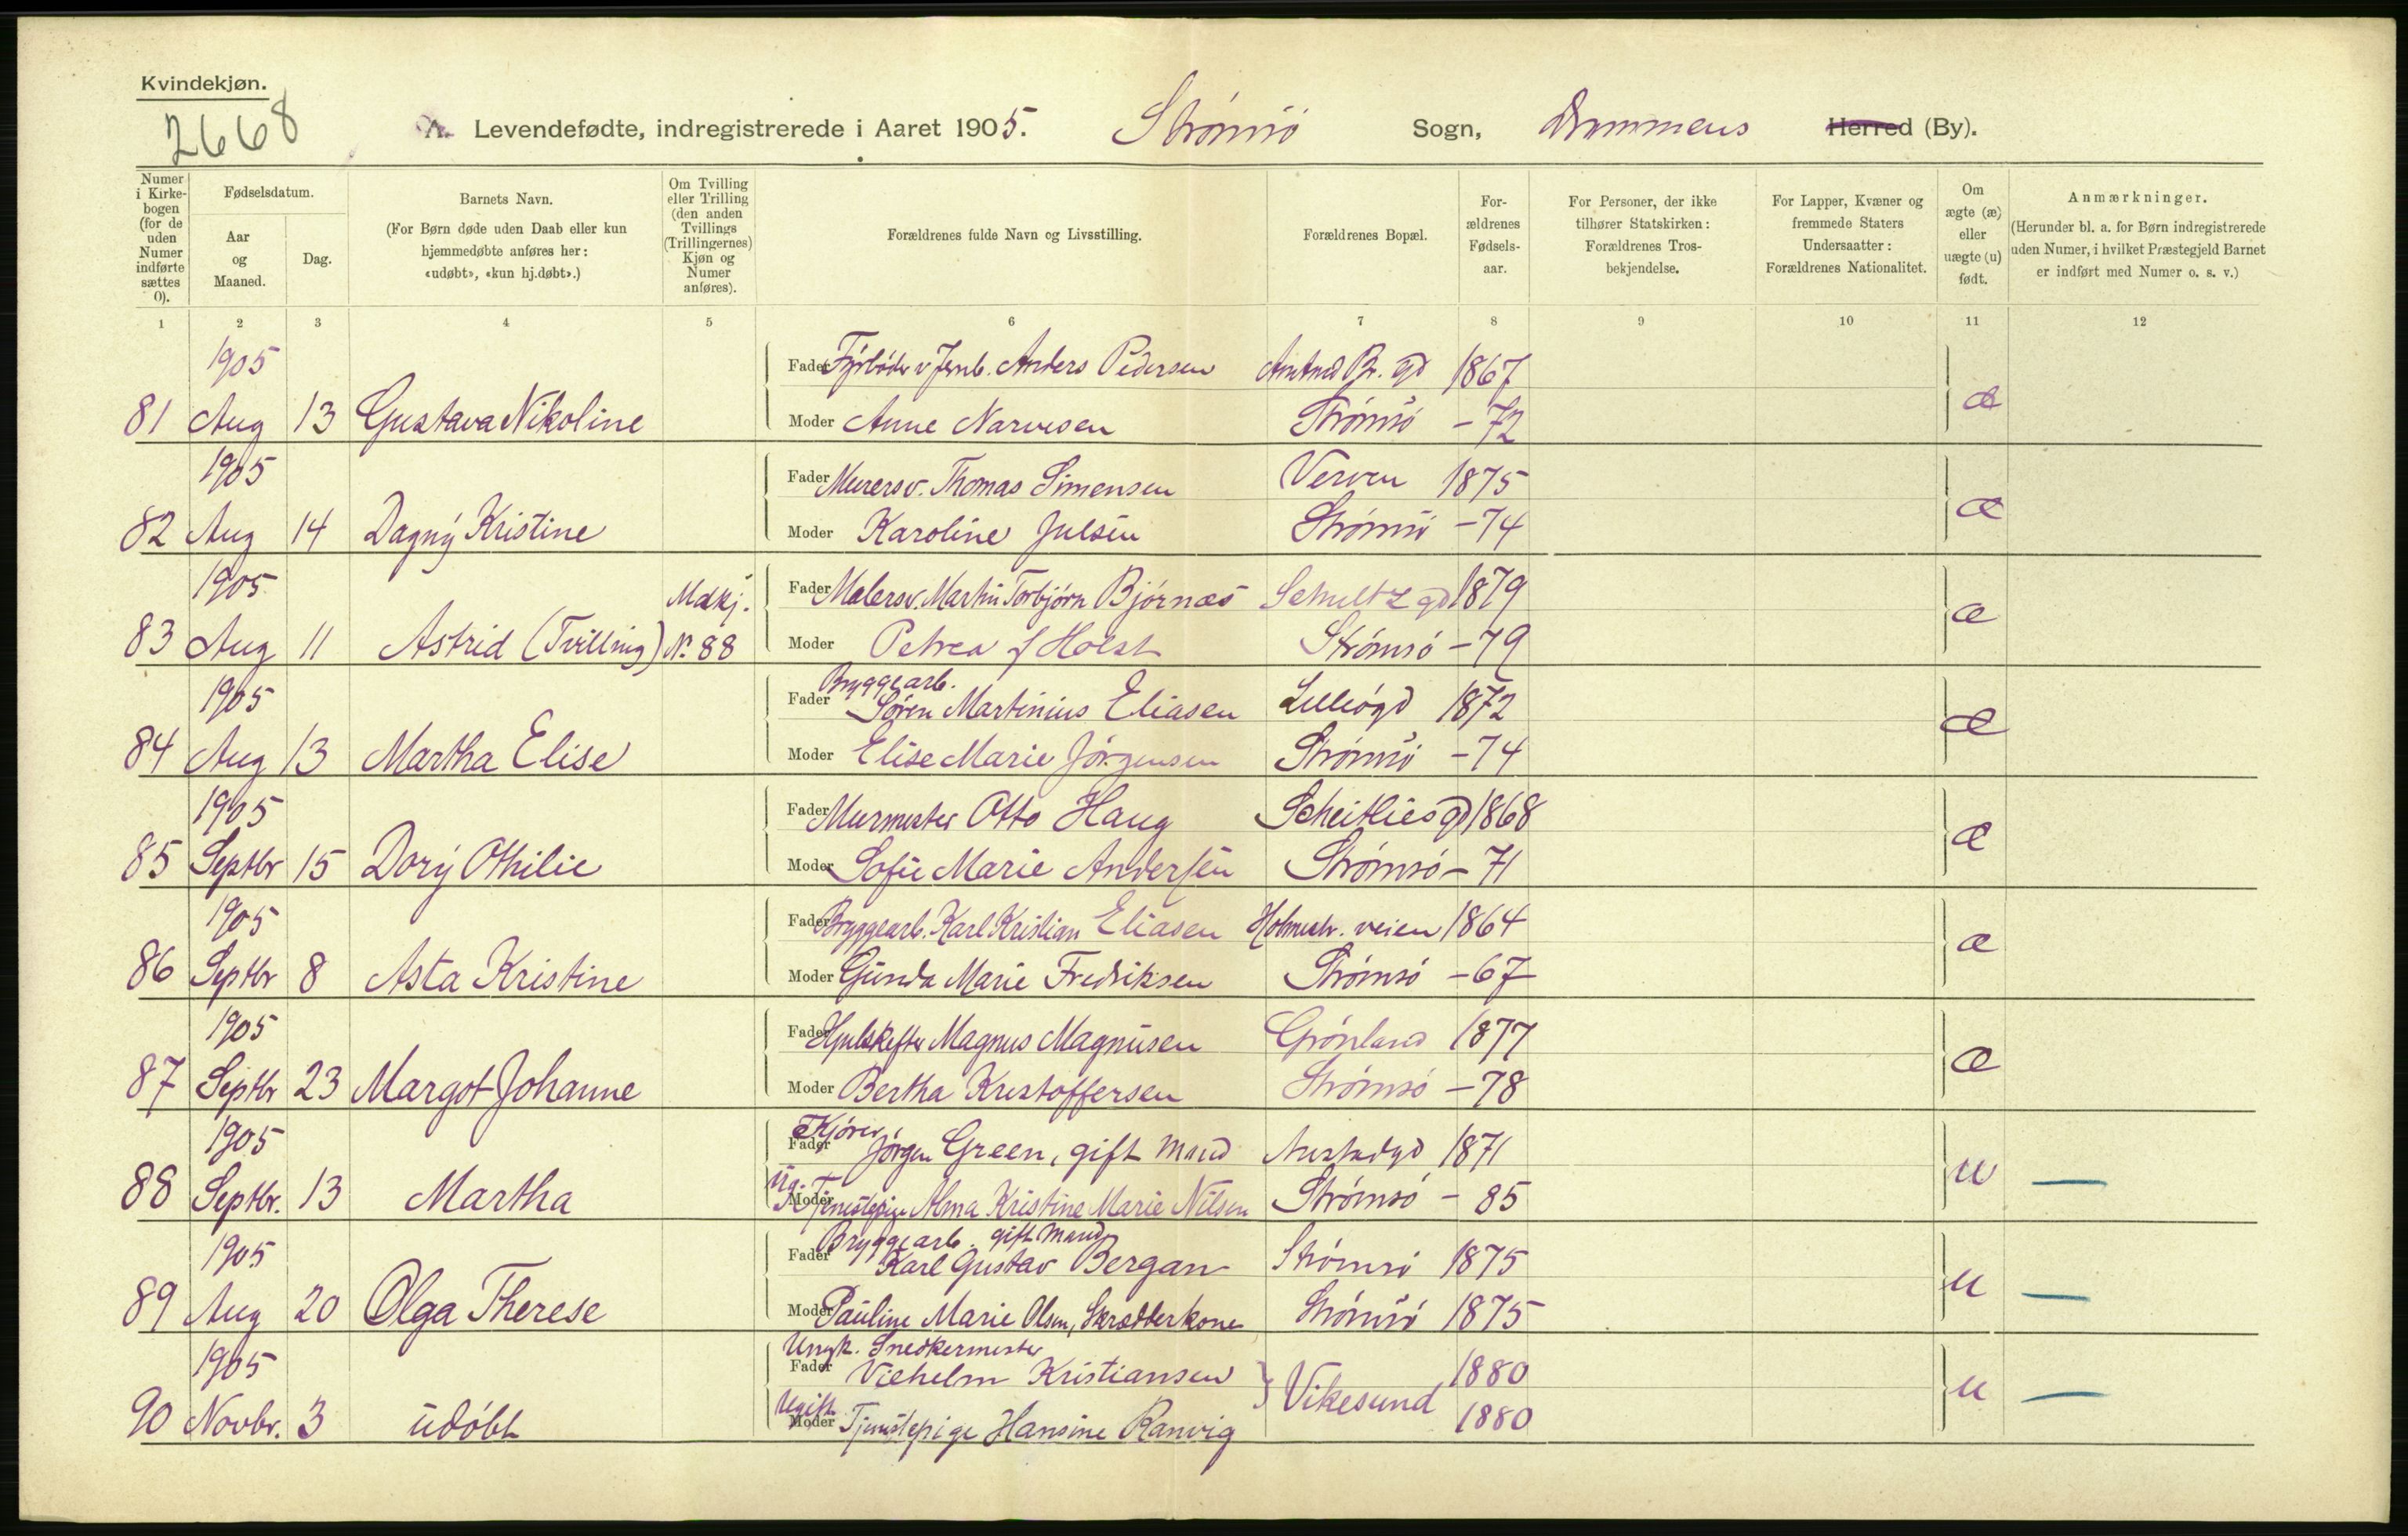 Kvindekjøn.
2668
A. Levendefødte, indregistrerede i Aaret 1905. Strømsø Sogn, Drammens Herred (By).
Numer i Kirkebogen (for de uden Numer indførte sættes 0).
Fødselsdatum.
Aar og Maaned.
Dag.
Barnets Navn.
(For Børn døde uden Daab eller kun hjemmedøbte anføres her: «udøbt», «kun hj.døbt».)
Om Tvilling eller Trilling (den anden Tvillings (Trillingernes) Kjøn og Numer anføres).
Forældrenes fulde Navn og Livsstilling.
Forældrenes Bopæl.
Forældrenes Fødselsaar.
For Personer, der ikke tilhører Statskirken: Forældrenes Trosbekjendelse.
For Lapper, Kvæner og fremmede Staters Undersaatter: Forældrenes Nationalitet.
Om ægte (æ) eller uægte (u) født.
Anmærkninger.
(Herunder bl. a. for Børn indregistrerede uden Numer, i hvilket Præstegjeld Barnet er indført med Numer o. s. v.)
1 2 3 4 5 6 7 8 9 10 11 12
1905 Fader Fyrbøder v Jernb. Anders Pedersen 1867
81 Aug 13 Gustava Nikoline Moder Anne Narvesen Strømsø - 72 æ
1905 Fader Murersv. Thomas Simensen Verven 1875
82 Aug 14 Dagny Kristine Moder Karoline Julsen Strømsø - 74 æ
1905 Mdkj. Fader Malersv. Martin Torbjørn Bjørnæs Schultz gd 1879
83 Aug 11 Astrid (Tvilling) N. 88 Moder Petrea f Holst Strømsø - 79 æ
1905 Bryggearb.
Fader Søren Martinius Eliasen Lilleøgd 1872
84 Aug 13 Martha Elise Moder Elise Marie Jørgensen Strømsø - 74 æ
1905 Fader Murmester Otto Haug Scheitliesgd 1868
85 Septbr 15 Dory Othilie Moder Sofie Marie Andersen Strømsø - 71 æ
1905 Fader Bryggearb. Karl Kristian Eliasen Holmestr. veien 1864
86 Septbr 8 Asta Kristine Moder Gunda Marie Fredriksen Strømsø - 67 æ
1905 Fader Magnus Magnusen Grønland 1877
87 Septbr 23 Margot Johanne Moder Bertha Kristoffersen Strømsø - 78 æ
1905 Kjører
Fader Jørgen Green, gift Mand Austadgd 1871
88 Septbr. 13 Martha Ug. Moder Tjenestepige Alma Kristine Marie Nilsen Strømsø - 85 u —
1905 Bryggearb. gift Mand
Fader Karl Gustav Bergan Strømsø 1875
89 Aug 20 Olga Therese Moder Pauline Marie Olsen, Skrædderkone Strømsø 1875 u —
1905 Ungk. Snedkermester
Fader Vilhelm Kristiansen Vikesund 1880
90 Novbr. 3 udøbt Ugift Moder Tjenestepige Hansine Ranvig 1880 u —